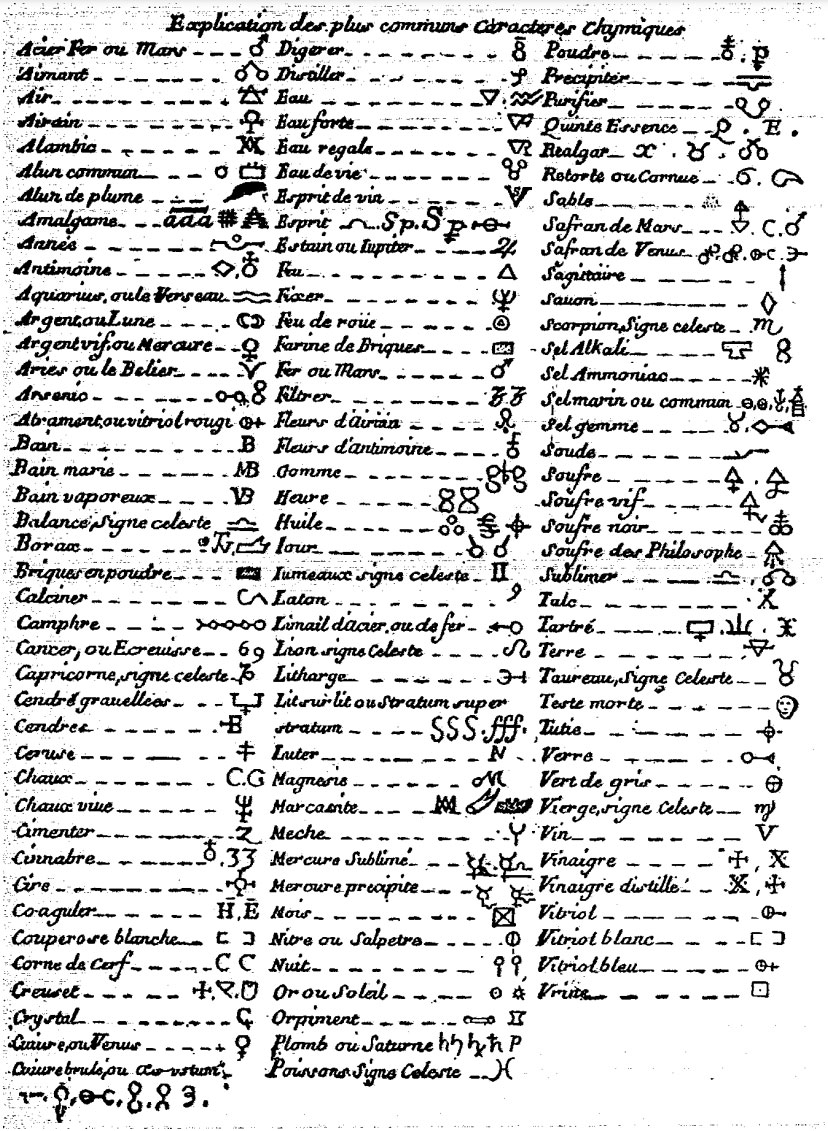 Explication des plus communs Caracteres Chymiques
Acier Fer ou Mars
Aimant
Air
Airain
Alambic
Alun commun
Alun de plume
Amalgame aaa
Année
Antimoine
Aquarius, ou le Verseau
Argent, ou Lune
Argent vif, ou Mercure
Aries ou le Belier
Arsenic
Atrament, ou vitriol rougi
Bain B
Bain marie MB
Bain vaporeux VB
Balance, signe celeste
Borax
Briques en poudre
Calciner
Camphre
Cancer, ou Ecrevisse 69
Capricorne, signe celeste
Cendré gravellées
Cendres E
Ceruse
Chaux C.G
Chaux vive
Cimenter Z
Cinnabre .33
Cire
Coaguler H, E
Couperose blanche
Corne de Cerf C C
Creuset
Crystal
Cuivre, ou Venus
Cuivre brulé, ou æs ustum
Digerer
Distiller
Eau
Eau forte
Eau regale
Eau de vie
Esprit de vin
Esprit Sp. S
Estain ou Iupiter
Feu
Fixer
Feu de roüe
Farine de Briques
Fer ou Mars
Filtrer
Fleurs d'airain
Fleurs d'antimoine
Gomme
Heure
Huile
Iour
Iumeaux signe celeste
Laton
Limail d'acier, ou de fer
Lion signe Celeste
Litharge
Lit sur lit ou Stratum super
stratum SSS.fff.
Luter
Magnesie
Marcasite
Meche
Mercure Sublimé
Mercure precipite
Mois
Nitre ou Salpetre
Nuit
Or ou Soleil
Orpiment
Plomb ou Saturne
Poissons Signe Celeste
Poudre
Precipiter
Purifier
Quinte Essence Q. E.
Realgar
Retorte ou Cornue
Sable
Safran de Mars
Safran de Venus
Sagitaire
Savon
Scorpion, Signe celeste
Sel Alkali
Sel Ammoniac
Sel marin ou commun
Sel gemme
Soude
Soufre
Soufre vif
Soufre noir
Soufre des Philosophe
Sublimer
Talc X
Tartré
Terre
Taureau, Signe Celeste
Teste morte
Tutie
Verre
Vert de gris
Vierge, signe Celeste
Vin V
Vinaigre
Vinaigre distillé
Vitriol
Vitriol blanc
Vitriol bleu
Vrine